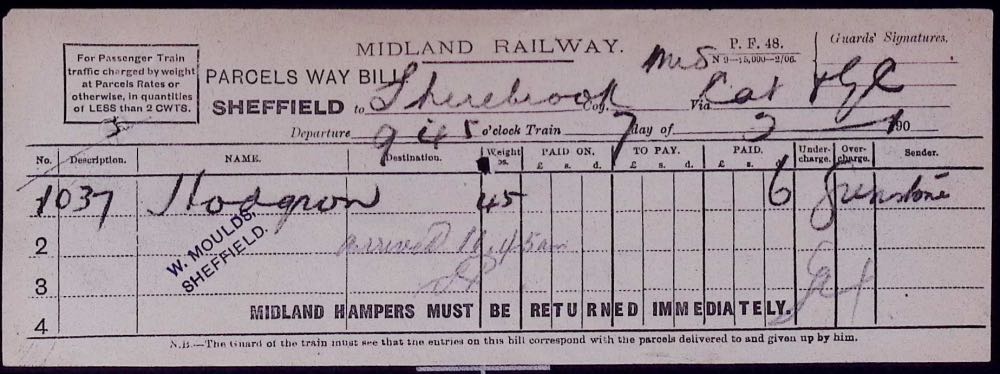 For Passenger Train
traffic charged by weight
at Parcels Rates or
otherwise, in quantities
of LESS than 2 CWTS.
MIDLAND RAILWAY.
P. F. 48.
N 9—15,000—2/06.
Guards' Signatures.
PARCELS WAY BILL
SHEFFIELD to Shirebrook Coy. Via Cat
Departure 9 45 o'clock Train 7 day of 2 190
No. Description. NAME. Destination. Weight PAID ON. TO PAY. PAID. Under-charge. Over-charge. Sender.
£ s. d. £ s. d. £ s. d.
1 037 Hodgson 45 6
W. MOULDS,
SHEFFIELD.
2 arrived
3
MIDLAND HAMPERS MUST BE RETURNED IMMEDIATELY.
4
N.B.—The Guard of the train must see that the entries on this bill correspond with the parcels delivered to and given up by him.